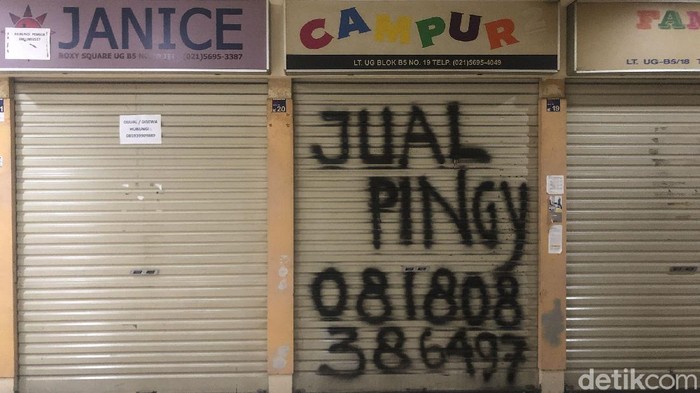 JANICE
ROXY SQUARE UG B5 NO.
(021)5695-3387
CAMPUR
LT. UG BLOK B5 NO. 19 TELP. (021)5695-4049
FAN
LT. UG-B5/18
20
19
DIJUAL / DISEWA
HUBUNGI :
JUAL
PINGY
081808
386497
detikcom